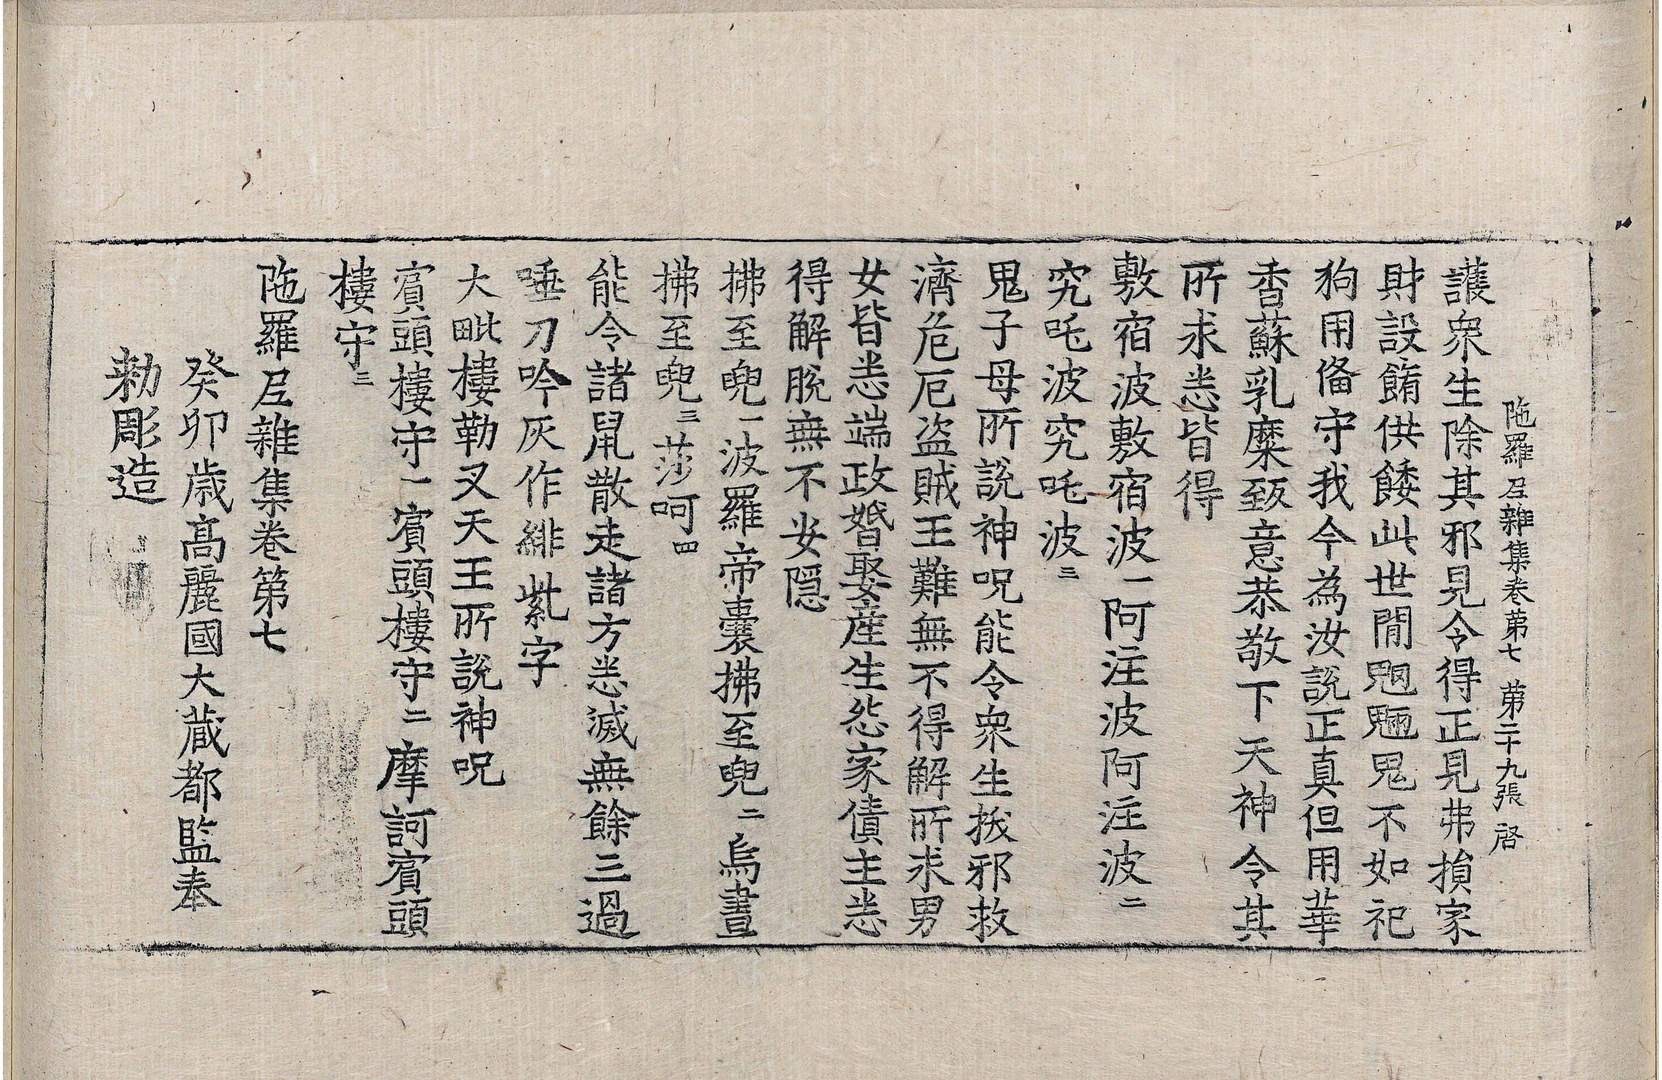 陁羅尼雜集卷苐七 苐二十九張 啓
護衆生除其邪見令得正見弗損家
財設餚供餧此世閒魍魎鬼不如祀
狗用俻守我今為汝說正真但用華
香蘇乳糜致意恭敬下天神令其
所求恙皆得
敷宿波敷宿波一阿注波阿注波二
究吒波究吒波三
鬼子母所說神呪能令衆生拔邪救
濟危厄盜賊王難無不得解所求男
女皆恙端政婚娶産生怨家債主恙
得解脫無不安隠
拂至㲋一波羅帝囊拂至㲋二烏晝
拂至㲋三莎呵四
能令諸鼠散走諸方恙滅無餘三過
唾刀吟灰作緋紫字
大毗樓勒叉天王所說神呪
賔頭樓守一賔頭樓守二摩訶賔頭
樓守三
陁羅尼雜集卷第七
癸卯歳髙麗國大蔵都監奉
勅彫造